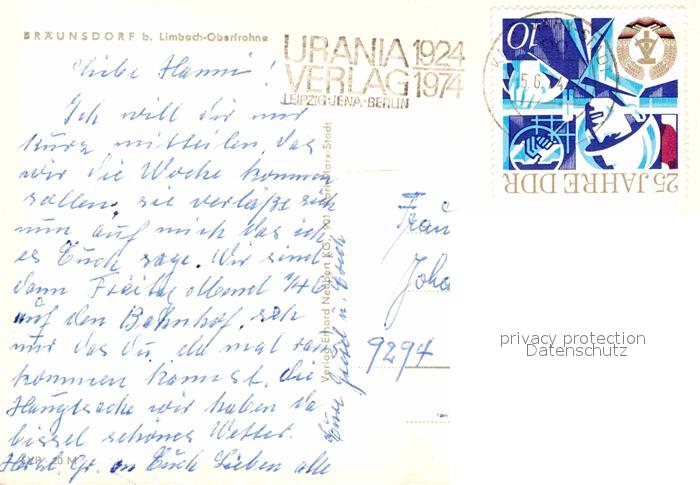 BRÄUNSDORF b. Limbach-Oberfrohna
URANIA 1924
VERLAG 1974
LEIPZIG·JENA·BERLIN
10
25 JAHRE DDR
Liebe Hanni!
Ich will dir nur
kurz mitteilen, das
wir die Woche kommen
sollen. sie verläße sich
nun auf mich das ich
es Euch sage. Wir sind
dann Freitag Abend 1/4 6
auf den Bahnhof. seh
nur das du, da mal ran
kommen kannst. die
Hauptsache wir haben da
bissel schönes Wetter.
Herzl. Gr. an Euch Lieben alle
Eure Gretel u. Erich
Verlag Erhard Neubert KG, 901 Karl-Marx-Stadt
Frau
Joha
9294
20 M
privacy protection
Datenschutz